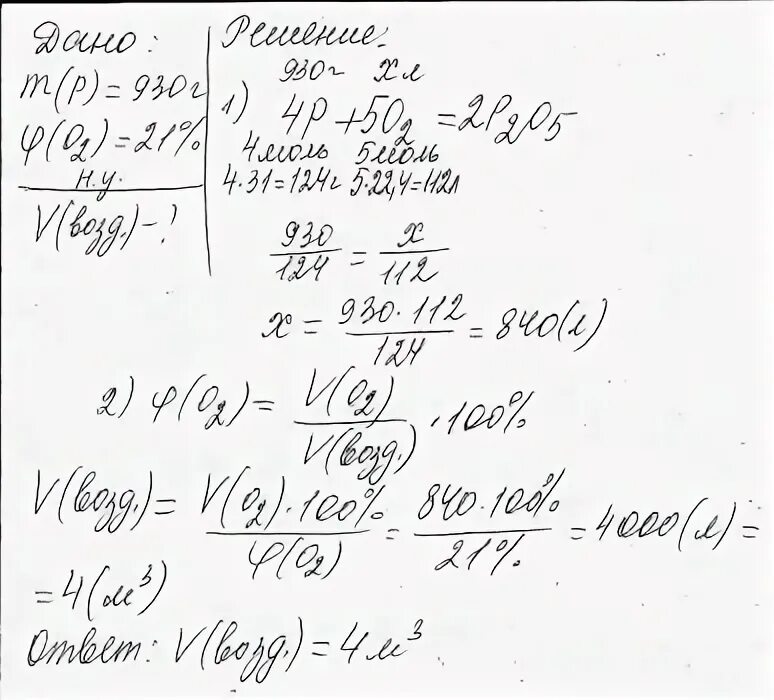 Дано:
m(P) = 930г
φ(O₂) = 21%
н.у.
V(возд.) - ?
Решение.
930г хл
1) 4P + 5O₂ = 2P₂O₅
4моль 5моль
4·31=124г 5·22,4=112л
930/124 = x/112
x = 930·112/124 = 840(л)
2) φ(O₂) = V(O₂)/V(возд.) · 100%
V(возд.) = V(O₂)·100%/φ(O₂) = 840·100%/21% = 4000(л) =
= 4(м³)
Ответ: V(возд.) = 4м³